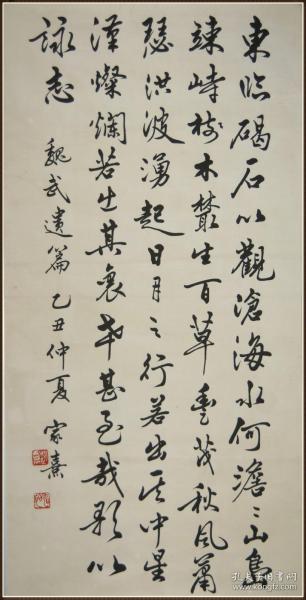 東臨碣石以觀滄海水何澹〻山島
竦峙樹木叢生百草豐茂秋風蕭
瑟洪波湧起日月之行若出其中星
漢燦爛若出其裏幸甚至哉歌以
詠志
魏武遺篇 乙丑仲夏 家熹
孔夫子旧书网